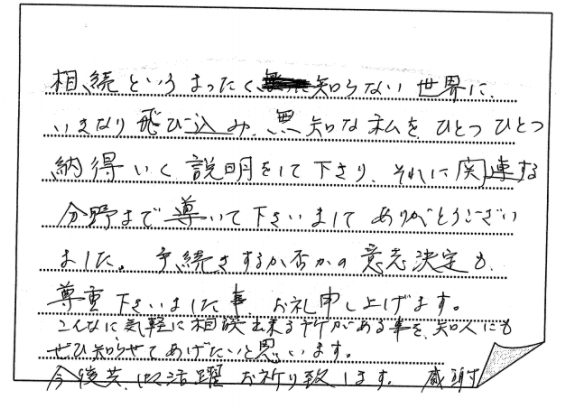 相続というまったく知らない世界に、
いきなり飛び込み、無知な私をひとつひとつ
納得いく説明をして下さり、それに関連する
分野まで導いて下さいまして ありがとうござい
ました。手続きするか否かの意志決定も、
尊重下さいました事、お礼申し上げます。
こんなに気軽に相談出来る所がある事を、知人にも
ぜひ知らせてあげたいと思います。
今後共、ご活躍 お祈り致します。 感謝